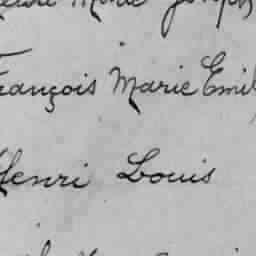 Marie Joseph
François Marie Emil
Henri Louis